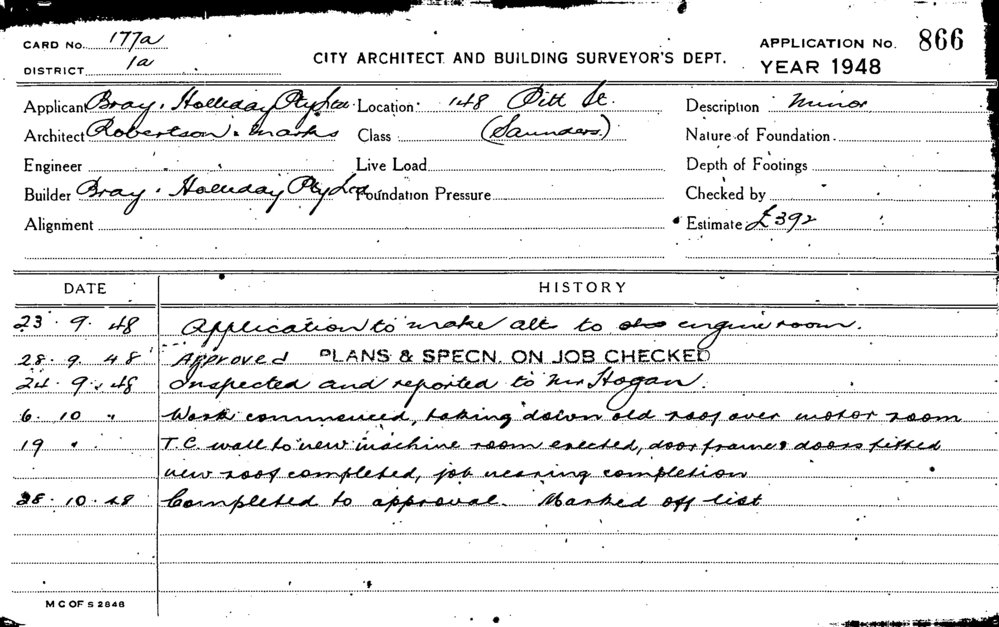 CARD No. 177a
DISTRICT 1a
CITY ARCHITECT AND BUILDING SURVEYOR'S DEPT.
APPLICATION No. 866
YEAR 1948
Applicant Bray & Holliday Pty Ltd Location 148 Pitt St. Description Minor
Architect Robertson & Marks Class (Saunders.) Nature of Foundation
Engineer Live Load Depth of Footings
Builder Bray & Holliday Pty Ltd Foundation Pressure Checked by
Alignment Estimate £392
DATE HISTORY
23. 9. 48 Application to make alts to engine room.
28. 9. 48 Approved PLANS & SPECN. ON JOB CHECKED
24. 9. 48 Inspected and reported to Mr Hogan.
6. 10 " Work commenced, taking down old roof over motor room
19 " T.C. wall to new machine room erected, door frame & doors fitted
new roof completed, job nearing completion
28. 10. 48 Completed to approval. Marked off list
M C OF S 2848